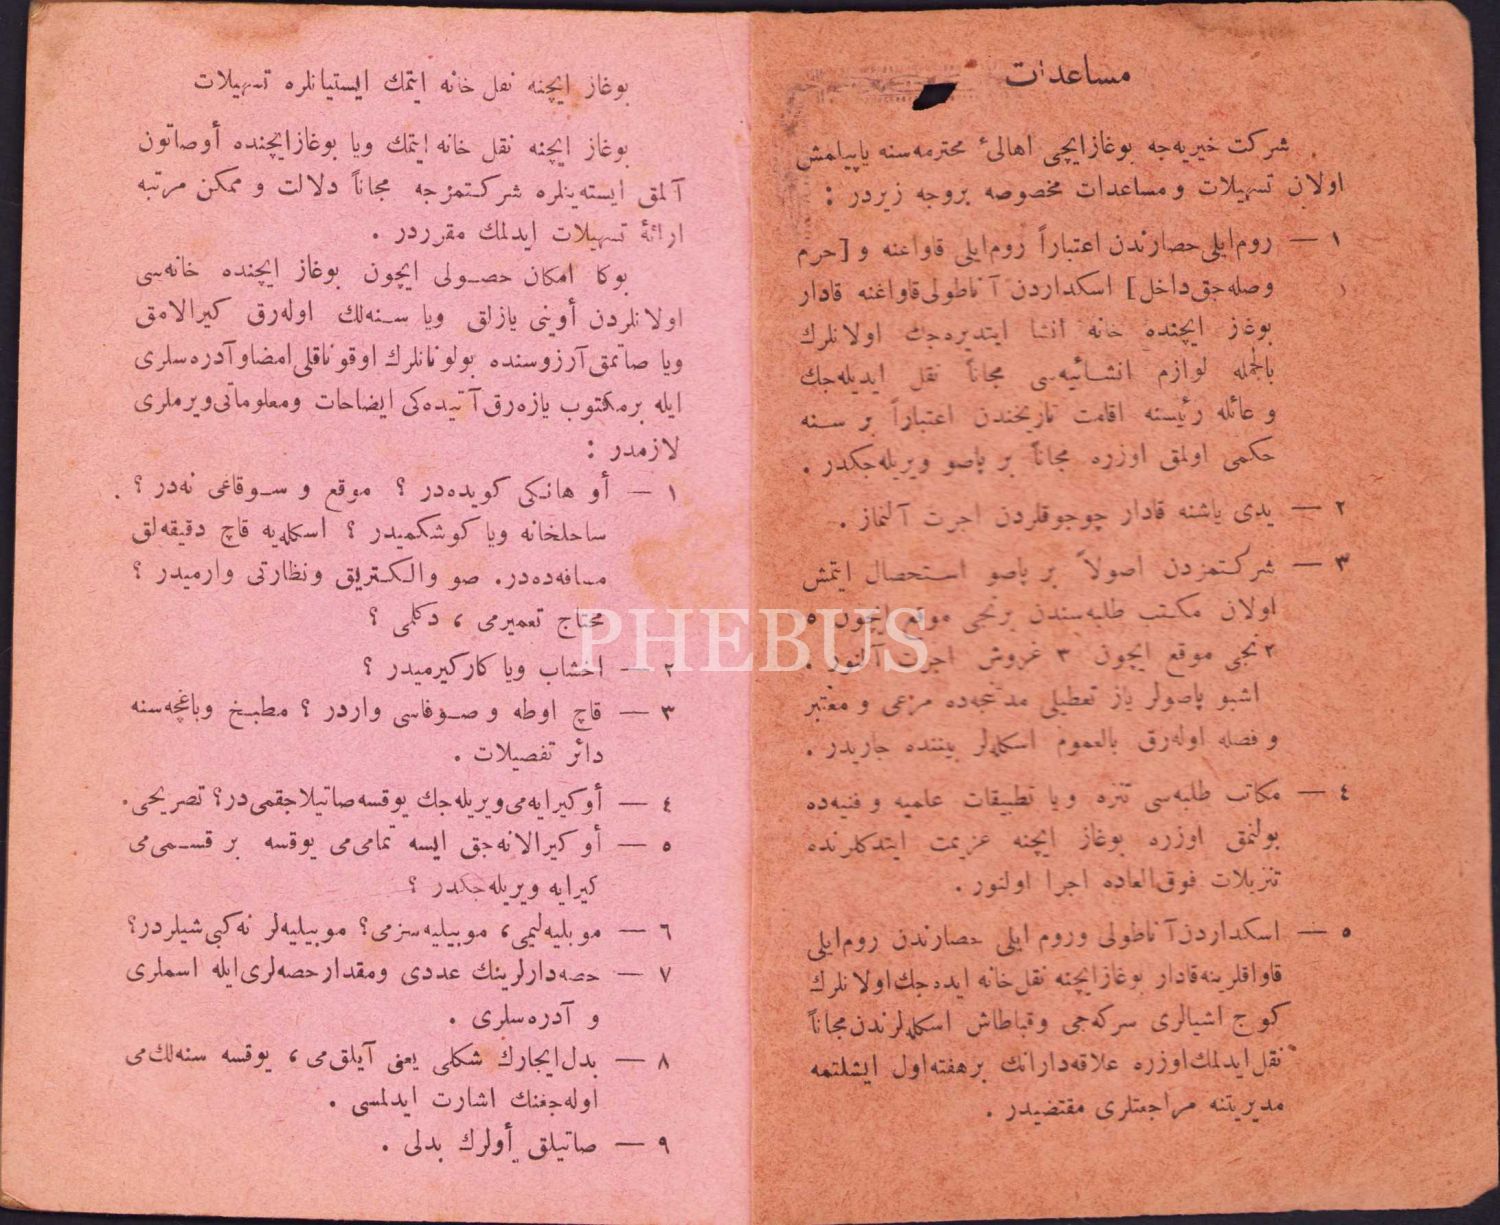 مساعدات
شركت خيريه‌جه بوغازايچى اهالئ محترمه‌سنه ياپيلمش
اولان تسهيلات و مساعدات مخصوصه بروجه زيردر :
١ — روم‌ايلى‌حصارندن اعتباراً روم‌ايلى قاواغنه و [حرم
وصله‌جق‌داخل] اسكداردن آناطولى‌قاواغنه قادار
بوغاز ايچنده خانه انشا ايتديره‌جك اولانلرك
بالجمله لوازم انشائيه‌سى مجاناً نقل ايديله‌جك
و عائله رئيسنه اقامت تاريخندن اعتباراً بر سنه
حكمى اولمق اوزره مجاناً بر پاصو ويريله‌جكدر .
٢ — يدى ياشنه قادار چوجوقلردن اجرت آلنماز .
٣ — شركتمزدن اصولاً بر پاصو استحصال ايتمش
اولان مكتب طلبه‌سندن برنجى موقع ايچون ٥
٢نجى موقع ايچون ٣ غروش اجرت آلنور .
اشبو پاصولر ياز تعطيلى مدتجه‌ده مرعى و معتبر
و فصله اوله‌رق بالعموم اسكله‌لر بيننده جاريدر .
٤ — مكاتب طلبه‌سى تنزه ويا تطبيقات علميه و فنيه‌ده
بولنمق اوزره بوغاز ايچنه عزيمت ايتدكلرنده
تنزيلات فوق‌العاده اجرا اولنور .
٥ — اسكداردن‌آناطولى وروم ايلى حصارندن روم‌ايلى
قاواقلرينه‌قادار بوغازايچنه نقل‌خانه ايده‌جك‌اولانلرك
كوچ اشيالرى سركه‌جى وقباطاش اسكله‌لرندن‌مجاناً
نقل‌ايدلمك‌اوزره علاقه‌دارانك برهفته‌اول ايشلتمه
مديريتنه مراجعتلرى مقتضيدر .
بوغاز ايچنه نقل خانه ايتمك ايستيانلره تسهيلات
بوغاز ايچنه نقل خانه‌ايتمك ويا بوغازايچنده أوصاتون
آلمق ايسته‌ينلره شركتمزجه مجاناً دلالت و ممكن مرتبه
ارائهٔ تسهيلات ايدلمك مقرردر .
بوكا امكان حصولى ايچون بوغاز ايچنده خانه‌سى
اولانلردن أوينى يازلق ويا سنه‌لك اوله‌رق كيرالامق
ويا صاتمق‌آرزوسنده بولونانلرك اوقوناقلى‌امضاوآدره‌سلرى
ايله برمكتوب يازه‌رق‌آتيده‌كى ايضاحات ومعلوماتى‌ويرملرى
لازمدر :
١ — أو هانكى كويده‌در ؟ موقع و سوقاغى نه‌در ؟ .
ساحلخانه ويا كوشكميدر ؟ اسكله‌يه قاچ دقيقه‌لق
مسافه‌ده‌در. صو والكتريق ونظارتى وارميدر ؟
محتاج تعميرمى ، دكلمى ؟
٢ — اخشاب ويا كاركيرميدر ؟
٣ — قاچ اوطه و صوفاسى واردر ؟ مطبخ وباغچه‌سنه
دائر تفصيلات .
٤ — أوكيرايه‌مى‌ويريله‌جك يوقسه‌صاتيلاجقمى‌در؟ تصريحى.
٥ — أو كيرالانه‌جق ايسه تمامى‌مى يوقسه بر قسمى‌مى
كيرايه ويريله‌جكدر ؟
٦ — موبليه‌ليمى، موبيليه‌سزمى؟ موبيليه‌لر نه‌كبى‌شيلردر؟
٧ — حصه‌دارلرينك عددى ومقدارحصه‌لرى‌ايله اسملرى
و آدره‌سلرى .
٨ — بدل‌ايجارك شكلى يعنى آيلق‌مى ، يوقسه سنه‌لك‌مى
اوله‌جغنك اشارت ايدلمسى .
٩ — صاتيلق أولرك بدلى .
PHEBUS